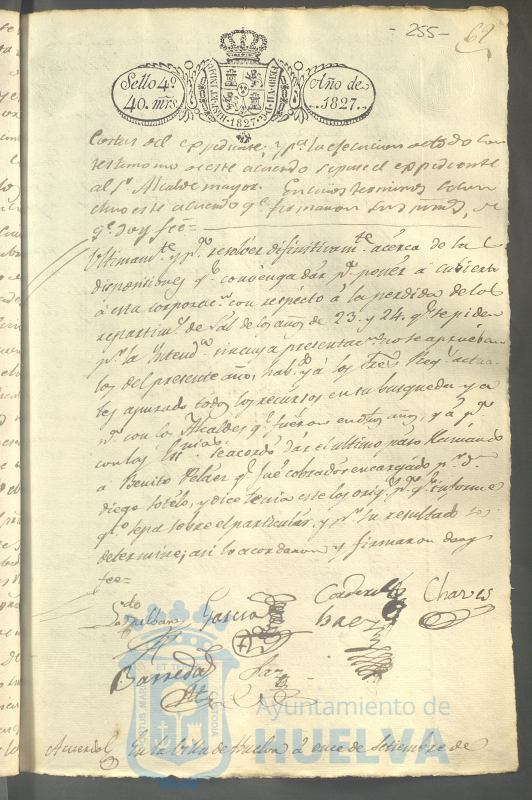 - 255 -
62
Sello 4º
40. mrs.
Año de
1827.
HISP. ET IND. R.
1827
Costas del expediente, y pª la ejecucion de todo con
testimonio de este acuerdo se pase el expediente
al Sr. Alcalde mayor. En cuios terminos se con
cluio este acuerdo qe. firmaron sus mrds, de
qe. doy fee =
Ultimamte. y pª resolver difinitivamte. acerca de las
disposiciones qe. convenga dar pª poner a cubierto
á esta corporacn. con respecto á la perdida de los
repartimtos. de Sal de los años de 23. y 24. qe. se piden
pr. la Intenda. sin cuya presentacn. no se aprueban
los del presente año, habdo. ya los Sres. Regs. actua
les apurado todos los recursos en su busqueda ya
pr. con los Alcaldes qe. fueron en dhos. años, y á pr.
con los Srios. Se acordó dar el ultimo paso llamando
a Benito Pelaez qe. fué cobrador encargado pr. Dn.
Diego Sotelo, y dice tenia este los origs. pª qe. informe
qe. sepa sobre el particular, y pr. su resultado se
determine; asi lo acordaron y firmaron doy
fee =
Garcia
Charves
Baez
Barreda
Acuerdo En la Villa de Huelva á once de Setiembre de
Ayuntamiento de
HUELVA